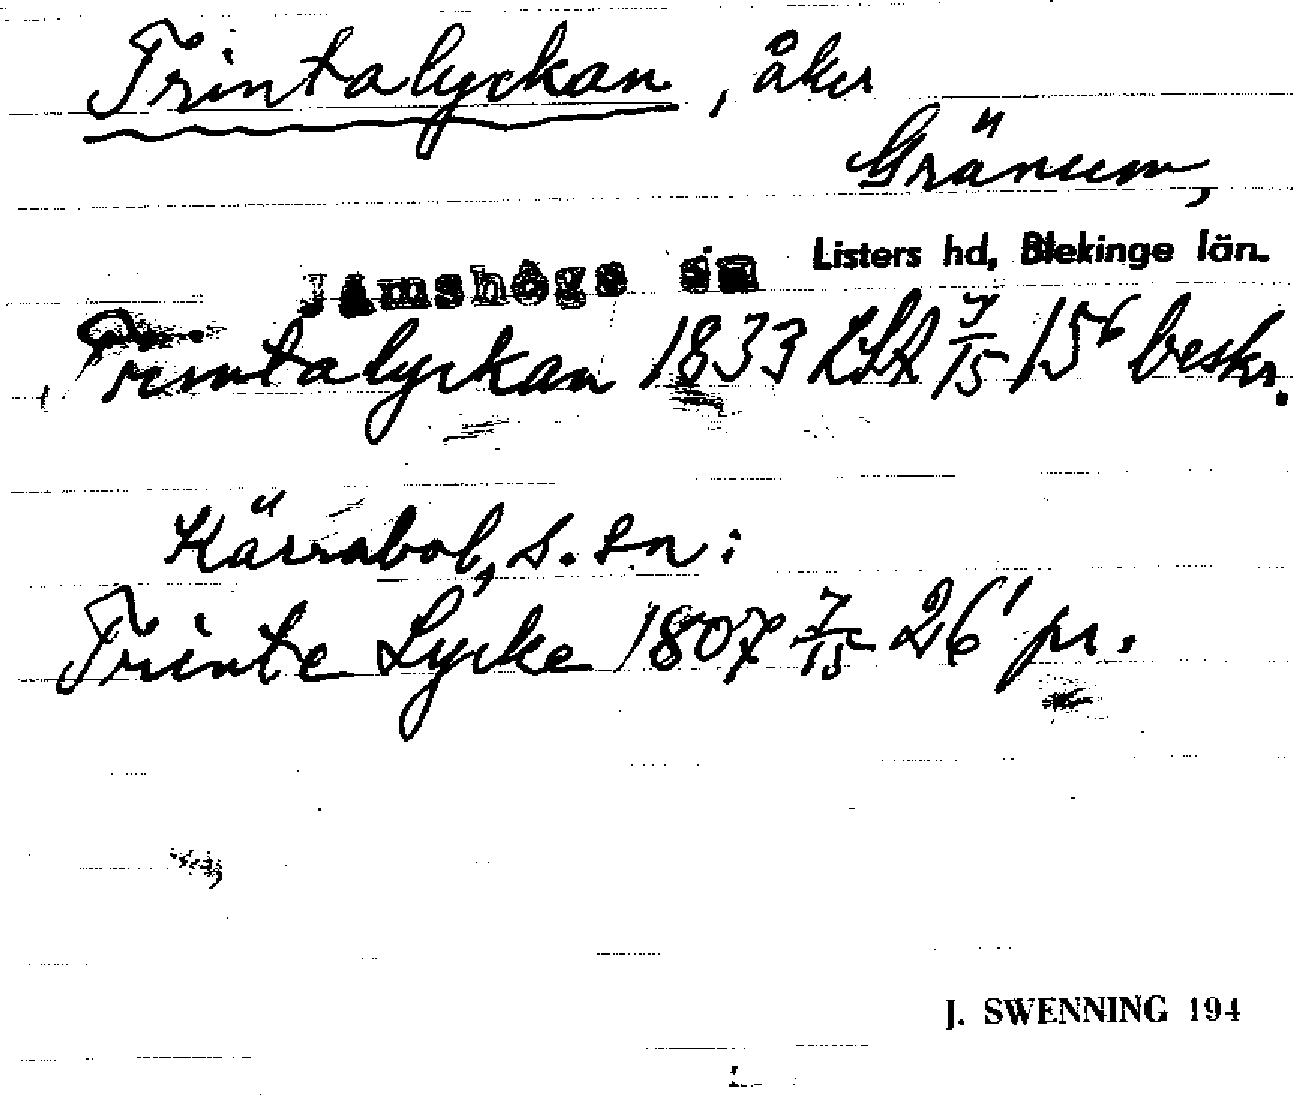 Trintalyckan, åker
Gränum,
Jämshögs sn Listers hd, Blekinge län.
Trintalyckan 1833 LSA 7/15 15⁶ beskr.
Kärrabol, s. sn:
Trinte Lycke 1807 7/15 26' pr.
J. SWENNING 194